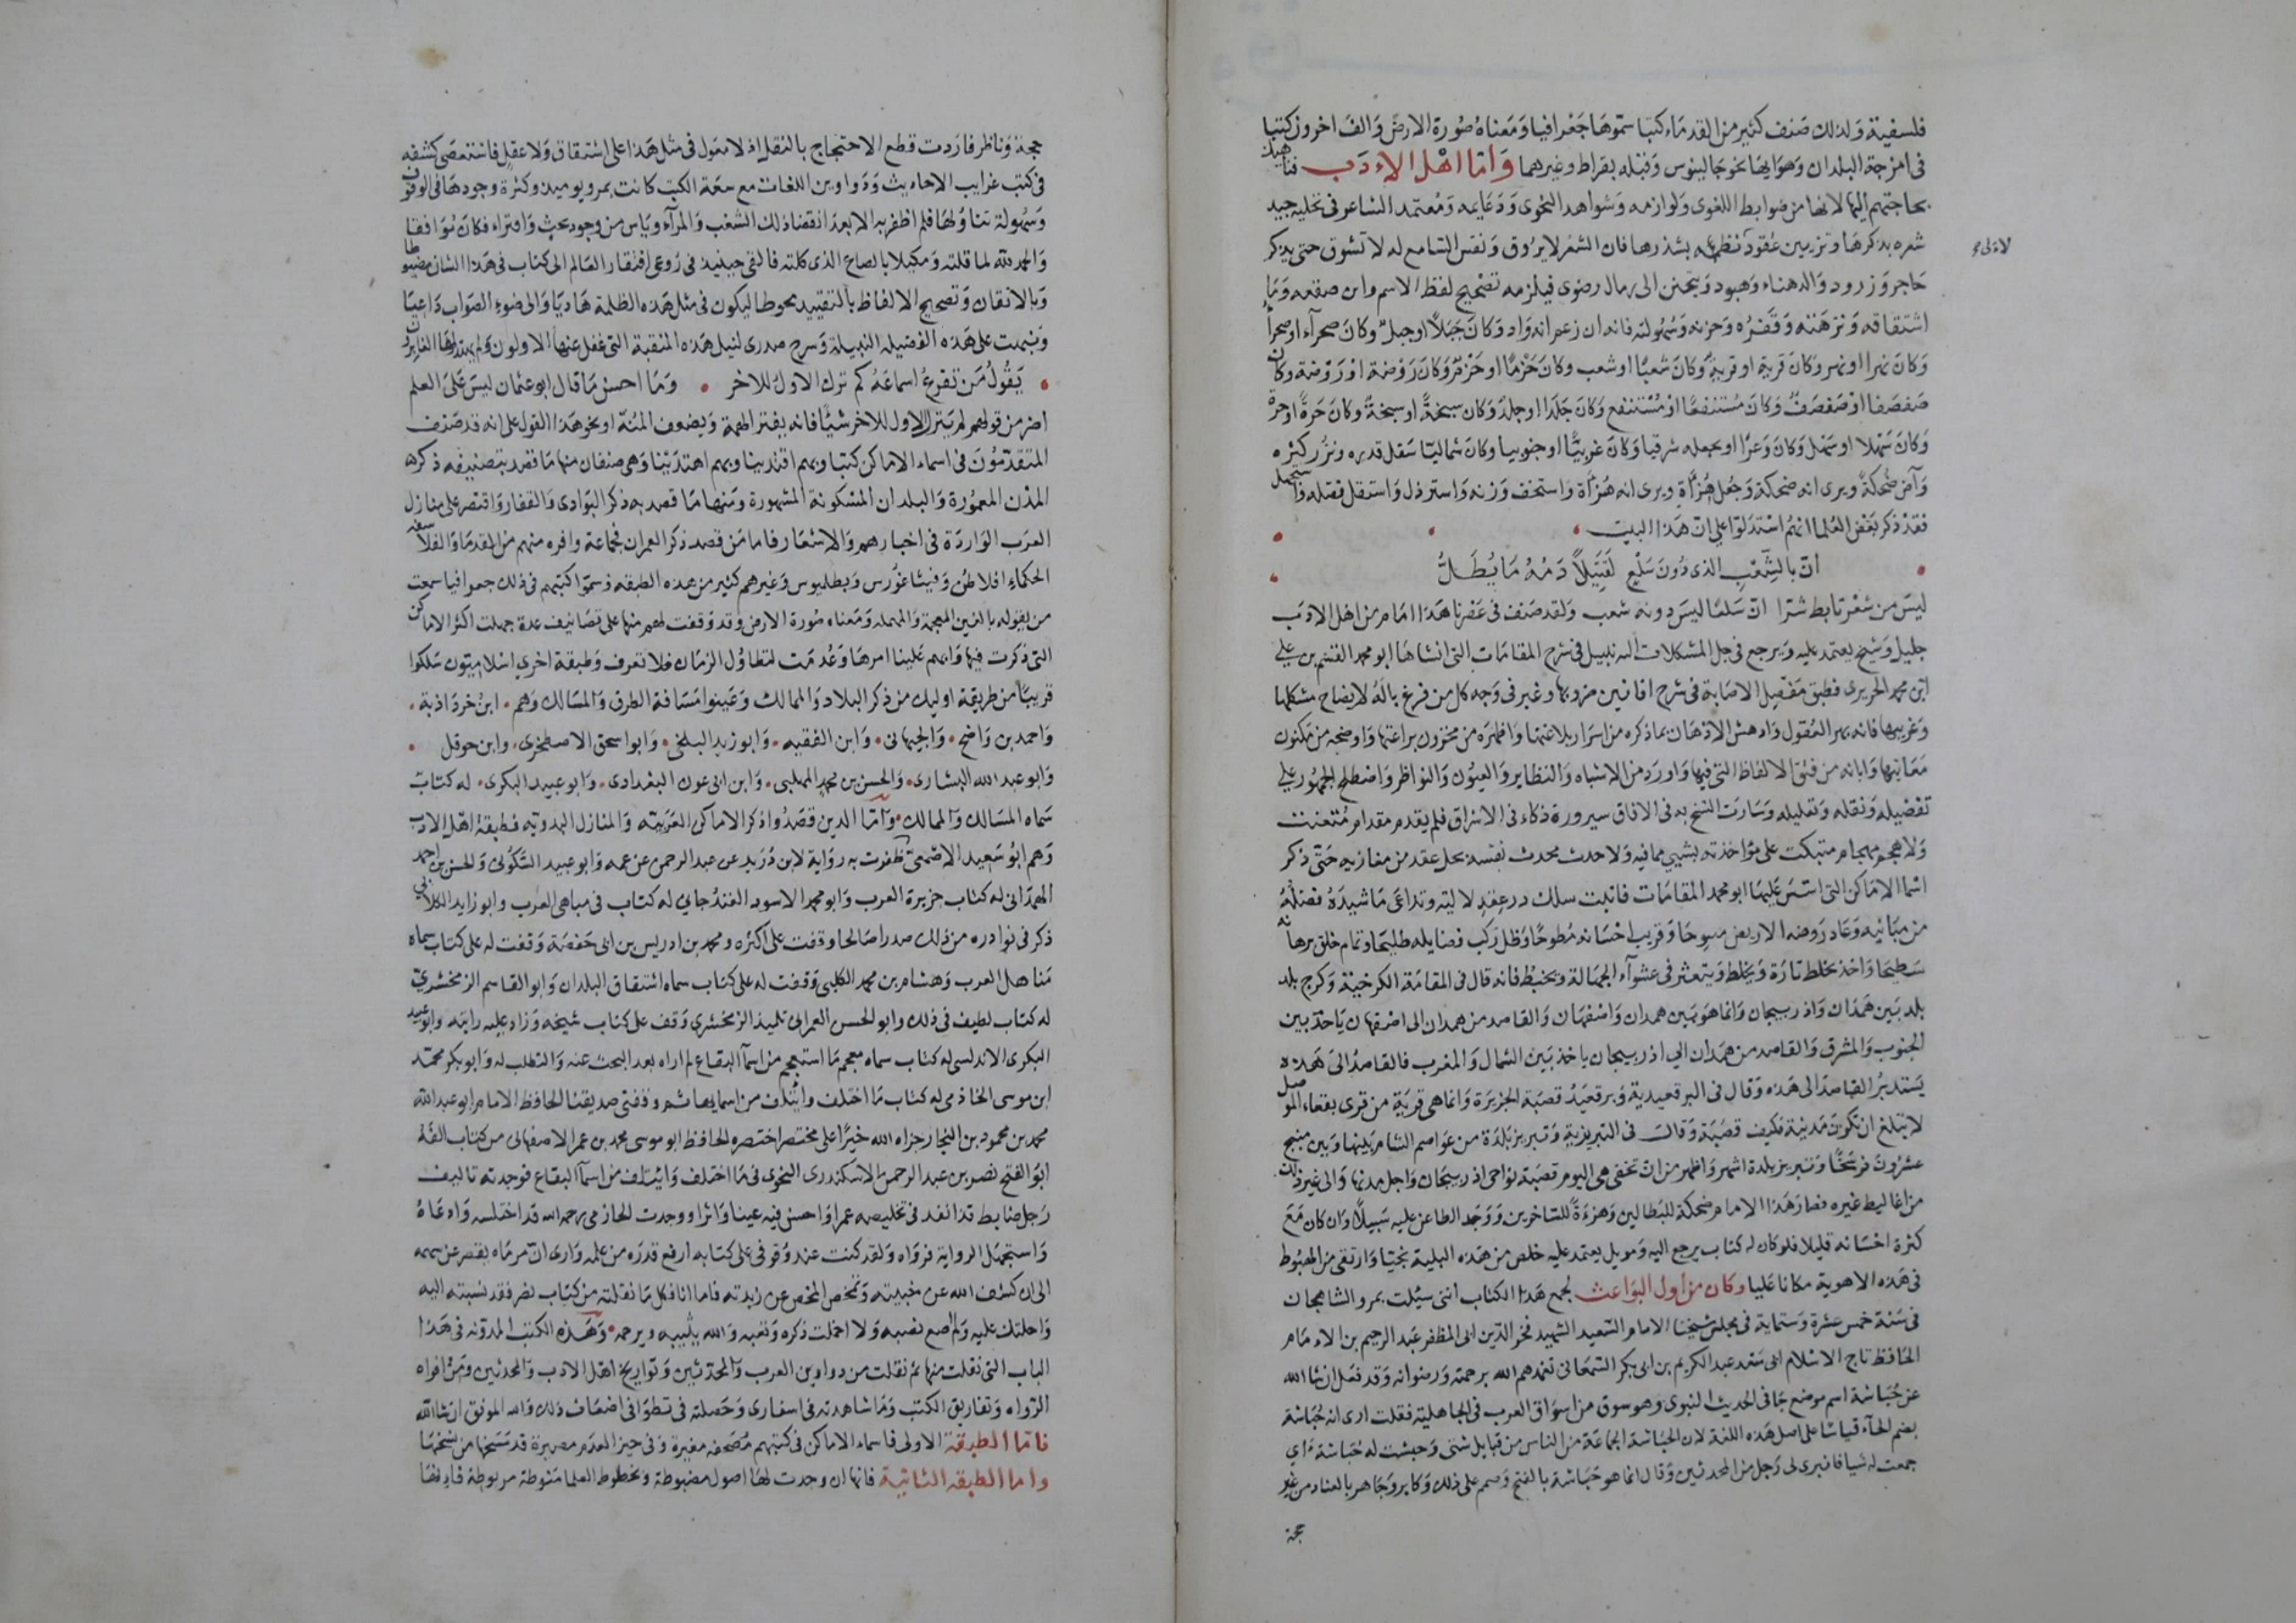 فلسفية ولذلك صنف كثير من القدماء كتبا سموها جغرافيا ومعناه صورة الارض والف اخرون كتبا
فى امزجة البلدان وهوايها نحو جالينوس وقبله بقراط وغيرهما واما اهل الاءدب فناهيك
بحاجتهم اليها لانها من ضوابط اللغوى ولوازمه وشواهد النحوى ودعايمه ومعتمد الشاعر فى تحليه جيد
شعره بذكرها وتزيين عقود نظمه بشذرها فان الشعر لا يروق ونفس السامع له لا تشوق حتى يذكر
حاجر وزرود والدهناء وهبود ويتحنن الى رمال رضوى فيلزمه تصحيح لفظ الاسم واين صقعه وما
اشتقاقه ونزهته وقفره وحزنه وسهولته فانه ان زعم انه واد وكان جبلا او جبل وكان صحرآء او صحرآ
وكان نهرا او نهر وكان قرية او قرية وكان شعبا او شعب وكان حزما او حزم وكان روضة او روضة وكان
صفصفا او صفصف وكان مستنقعا او مستنقع وكان جلدا او جلد وكان سبخة او سبخة وكان حرة او حرة
وكان سهلا او سهل وكان وعرا او يجعله شرقيا وكان غربيا او جنوبيا وكان شماليا سفل قدره ونزر كثره
وآض ضحكة ويرى انه ضحكة وجعل هزأة ويرى انه هزأة واستخف وزنه واسترذل واستقل فضله واستجهل
فقد ذكر بعض العلما انهم استدلوا على ان هذا البيت
ان بالشعب الذى دون سلع لقتيلا دمه ما يطل
ليس من شعر تابط شرا ان سلعا ليس دونه شعب ولقد صنف فى عصرنا هذا امام من اهل الادب
جليل وشيخ يعتمد عليه ويرجع فى حل المشكلات اليه نبيل فى شرح المقامات التى انشاها ابو محمد القسم بن على
ابن محمد الحريرى فطبق مفصل الاصابة فى شرح افانين ضروبها وغبر فى وجه كل من فرغ باله لايضاح مشكلها
وغريبها فانه بهر العقول وادهش الاذهان بما ذكره من اسرار بلاغتها واظهره من مخزون براعتها واوضحه من مكنون
معانيها وابانه من فتق الالفاظ التى فيها واورد من الاشباه والنظاير والعيون والنواظر واصطلح الجمهور على
تفضيله ونقله وتعليله وسارت النسخ به فى الافاق سيرورة ذكاء فى الاشراق فلم يقدم مقدام متعنت
ولا هجم مهجام متبكت على مؤاخذته بشيي مما فيه ولا حدث محدث نفسه بحل عقد من مغازيه حتى ذكر
اسما الاماكن التى اسس عليها ابو محمد المقامات فانبت سلك درر عقد لاليه وتداعى ما شيده فضله
من مبانيه وعاد روضه الاريض مصوحا وقريب احسانه مطوحا وظل ركب فضايله طليحا وتمام خلق برهانه
سطيحا واخذ يخلط تارة ويخلط ويتعثر فى عشوآء الجهالة ويخبط فانه قال فى المقامة الكرخية وكرج بلد
بلد بين همذان واذربيجان وانما هو بين همدان واصفهان والقاصد من همدان الى اصفهان ياخذ بين
الجنوب والمشرق والقاصد من همدان الى اذربيجان ياخذ بين الشمال والمغرب فالقاصد الى هذه
يستدبر القاصد الى هذه وقال فى البرقعيدية وبرقعيد قصبة الجزيرة وانما هى قرية من قرى بقعاء الموصل
لا تبلغ ان تكون مدينة فكيف قصبة وقال فى التبريزية وتبريز بلدة من عواصم الشام بينها وبين منبج
عشرون فرسخا وتبريز بلدة اشهر واظهر من ان تخفى هى اليوم قصبة نواحى اذربيجان واجل مدنها والى غير ذلك
من اغاليط غيره فصار هذا الامام ضحكة للبطالين وهزءة للساخرين ووجد الطاعن عليه سبيلا وان كان مع
كثرة احسانه قليلا فلو كان له كتاب يرجع اليه وموئل يعتمد عليه خلص من هذه البلية نجيا وارتقى من الهبوط
فى هذه الاهوية مكانا عليا وكان من اول البواعث لجمع هذا الكتاب اننى سئلت بمرو الشاهجان
فى سنة خمس عشرة وستماية فى مجلس شيخنا الامام السعيد الشهيد فخر الدين ابى المظفر عبد الرحيم بن الاءمام
الحافظ تاج الاسلام ابى سعد عبد الكريم بن ابى بكر السمعانى تغمدهم الله برحمته ورضوانه وقد فعل ان شا الله
عن حباشة اسم موضع جا فى الحديث النبوى وهو سوق من اسواق العرب فى الجاهلية فقلت ارى انه حباشة
بضم الحآء قياسا على اصل هذه اللغة لان الحباشة الجماعة من الناس من قبايل شتى وحبشت له حباشة ءاي
جمعت له شيا فانبرى لى رجل من المحدثين وقال انما هو حباشة بالفتح وصمم على ذلك وكابر وجاهر بالعناد من غير
حجة
حجة وناظر فاردت قطع الاحتجاج بالنقل اذ لا معول فى مثل هذا على اشتقاق ولا عقل فاستعصى كشفه
فى كتب غرايب الاحاديث ودواوين اللغات مع سعة الكتب كانت بمرو يوميذ وكثرة وجودها فى الوقوف
وسهولة تناولها فلم اظفر به الا بعد انقضا ذلك الشغب والمرآء وياس من وجوده ببحث واقتراء فكان موافقا
والحمد لله لما قلته ومكيلا بالصاع الذى كلته فالقى حينيذ فى روعى افتقار العالم الى كتاب فى هذا الشان مضبوطا
وبالاتقان وتصحيح الالفاظ بالتقييد محوطا ليكون فى مثل هذه الظلمة هاديا والى ضوء الصواب داعيا
ونبهت على هذه الفضيله النبيلة وشرح صدرى لنيل هذه المنقبة التى غفل عنها الاولون ولم يهتد لها الغابرون
يقول من تقرع اسماعه كم ترك الاول للاخر وما احسن ما قال ابو عثمان ليس على العلم
اضر من قولهم لم يترك الاول للاخر شيئا فانه يفتر الهمة ويضعف المنة او نحو هذا القول على انه قد صنف
المتقدمون فى اسماء الاماكن كتبا وبهم اقتدينا وبهم اهتدينا وهى صنفان منها ما قصد بتصنيفه ذكره
المدن المعمورة والبلدان المسكونة المشهورة ومنها ما قصد به ذكر البوادى والقفار واقتصر على منازل
العرب الواردة فى اخبارهم والاشعار فاما من قصد ذكر العمران فجماعة وافره منهم من القدما والفلاسفه
الحكماء افلاطن وفيثاغورس وبطلميوس وغيرهم كثير من هذه الطبقه وسموا كتبهم فى ذلك جعرافيا سمعت
من يقوله بالغين المعجمة والمهمله ومعناه صورة الارض وقد وقفت لهم منها على تصانيف عدة جهلت اكثر الاماكن
التى ذكرت فيها وابهم علينا امرها وعدمت لتطاول الزمان فلا تعرف وطبقة اخرى اسلاميون سلكوا
قريبا من طريقة اوليك من ذكر البلاد والممالك وعينوا مسافة الطرق والمسالك وهم ابن خرداذبة
واحمد بن واضح والجيهانى وابن الفقيه وابو زيد البلخى وابو اسحق الاصطخرى وابن حوقل
وابو عبد الله البشارى والحسن بن محمد المهلبى وابن ابى عون البغدادى وابو عبيد البكرى له كتاب
سماه المسالك والممالك واما الذين قصدوا ذكر الاماكن العربيه والمنازل البدويه فطبقة اهل الادب
وهم ابو سعيد الاصمعى ظفرت به رواية لابن دريد عن عبد الرحمن عن عمه وابو عبيد السكونى والحسن بن احمد
الهمدانى له كتاب جزيرة العرب وابو محمد الاسود الغندجانى له كتاب فى مياهى العرب وابو زياد الكلابي
ذكر فى نوادره من ذلك صدرا صالحا وقفت على اكثره ومحمد بن ادريس بن ابى حفصة وقفت له على كتاب سماه
مناهل العرب وهشام بن محمد الكلبى وقفت له على كتاب سماه اشتقاق البلدان وابو القاسم الزمخشرى
له كتاب لطيف فى ذلك وابو الحسن العمرانى تلميذ الزمخشرى وقف على كتاب شيخه وزاد عليه رايته وابو عبيد
البكرى الاندلسى له كتاب سماه معجم ما استعجم من اسمآ البقاع لم اراه بعد البحث عنه والتطلب له وابو بكر محمد
ابن موسى الحازمى له كتاب ما اختلف وائتلف من اسمايها ثم وقفنى صديقنا الحافظ الامام ابو عبد الله
محمد بن محمود بن النجار جزاه الله خيرا على مختصر اختصره الحافظ ابو موسى محمد بن عمر الاصفهانى من كتاب الفه
ابو الفتح نصر بن عبد الرحمن الاسكندرى النحوى فى ما اختلف وائتلف من اسمآ البقاع فوجدته تاليف
رجل ضابط قد انفد فى تخليصه عمرا واحسن فيه عينا واثرا ووجدت الحازمى رحمه الله قد اختلسه وادعاه
واستجهل الرواية فرواه ولقد كنت عند وقوفى على كتابه ارفع قدره من علمه وارى ان مرماه يقصر عن سهمه
الى ان كشف الله عن خبيته وتمحص المحض عن زبدته فاما انا فكل ما نقلته من كتاب نصر فقد نسبته اليه
واحلتك عليه ولم اضع نصبه ولا اخملت ذكره وتعبه والله يثيبه ويرحمه وهذه الكتب المدونه فى هذا
الباب التى نقلت منها ثم نقلت من دواوين العرب والمحدثين وتواريخ اهل الادب والمحدثين ومن افواه
الرواه وتفاريق الكتب وما شاهدته فى اسفارى وحصلته فى تطوافى اضعاف ذلك والله الموفق ان شا الله
فاما الطبقة الاولى فاسماء الاماكن فى كتبهم مصحفه مغيرة وفى حيز العدم مصيرة قد مسخها من نسخها
واما الطبقه الثانية فانها ان وجدت لها اصول مضبوطة وبخطوط العلما منوطة مربوطة فاءنها